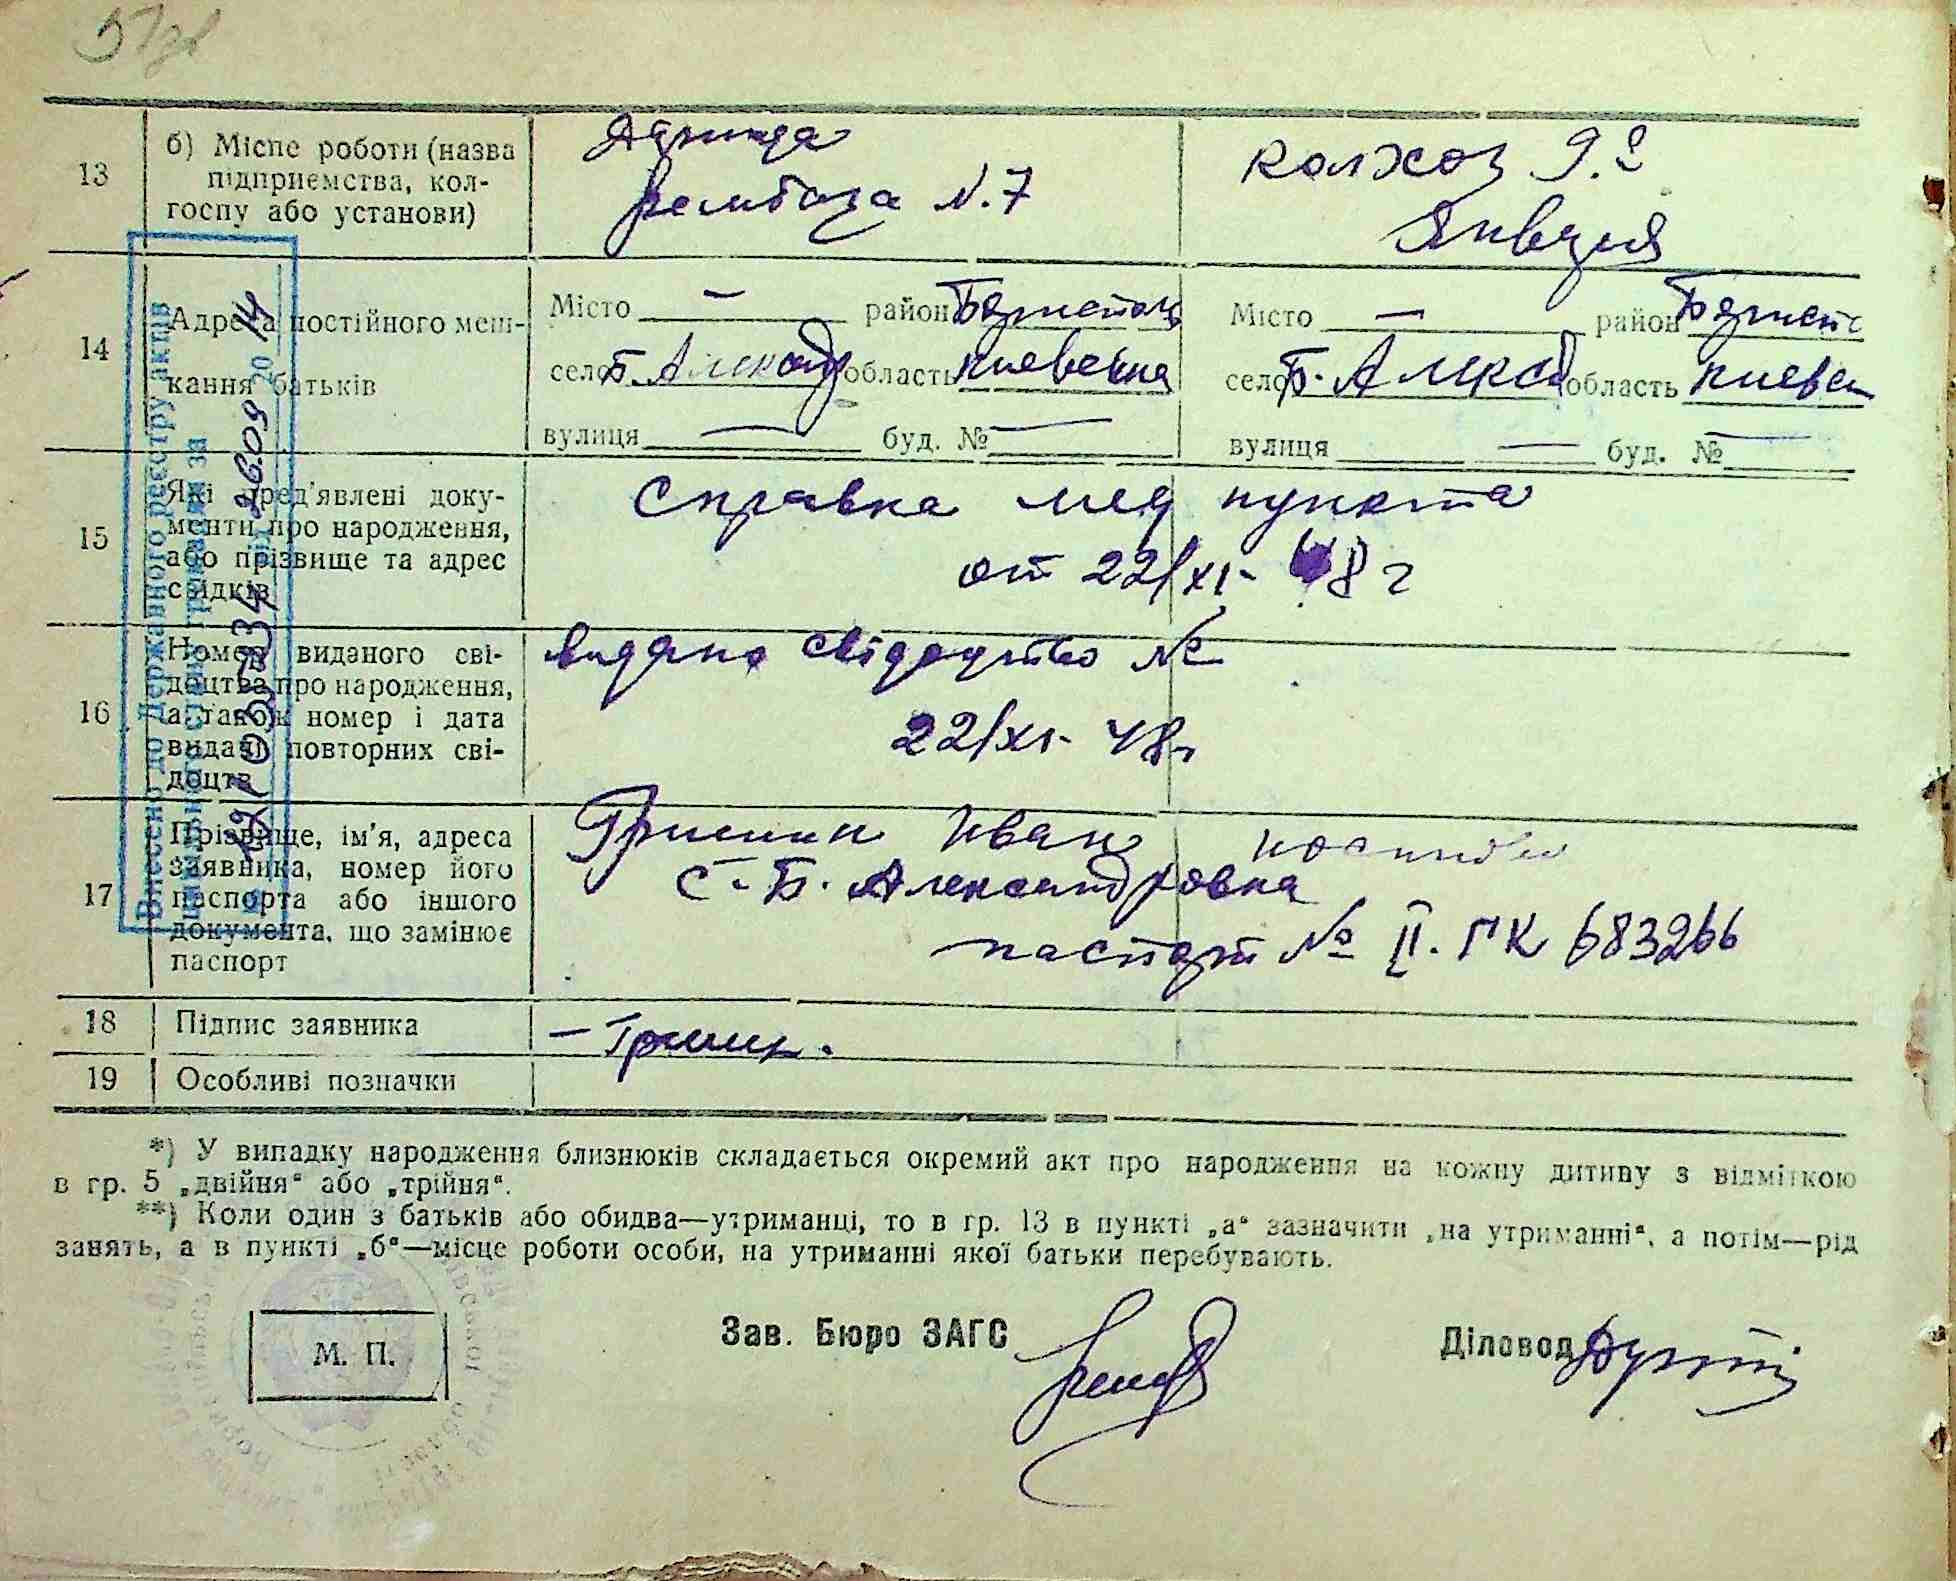 13
б) Місце роботи (назва
підприємства, кол-
госпу або установи)
Дарница
рембаза N.7
колхоз 9.е
Января
14
Адреса постійного меш-
кання батьків
Місто — район
село Б. Александр область Киевская
вулиця — буд. № —
Місто — район
село Б. Алексад область Киевск
вулиця — буд. № —
15
Які пред'явлені доку-
менти про народження,
або прізвище та адрес
свідків
Справка мед пункта
от 22/XI- 48 г
16
Номер виданого сві-
доцтва про народження,
а також номер і дата
видачі повторних сві-
доцтв
видано свідоцтво №
22/XI- 48г
17
Прізвище, ім'я, адреса
заявника, номер його
паспорта або іншого
документа, що замінює
паспорт
Гришин Иван
с. Б. Александровка
паспорт № II. ГК 683266
18
Підпис заявника
— Гришин.
19
Особливі позначки
*) У випадку народження близнюків складається окремий акт про народження на кожну дитину з відміткою
в гр. 5 „двійня“ або „трійня“.
**) Коли один з батьків або обидва—утриманці, то в гр. 13 в пункті „а“ зазначити „на утриманні“, а потім—рід
занять, а в пункті „б“—місце роботи особи, на утриманні якої батьки перебувають.
М. П.
Зав. Бюро ЗАГС
Діловод
Внесено до Державного реєстру актів
цивільного стану громадян за
26.09 2014